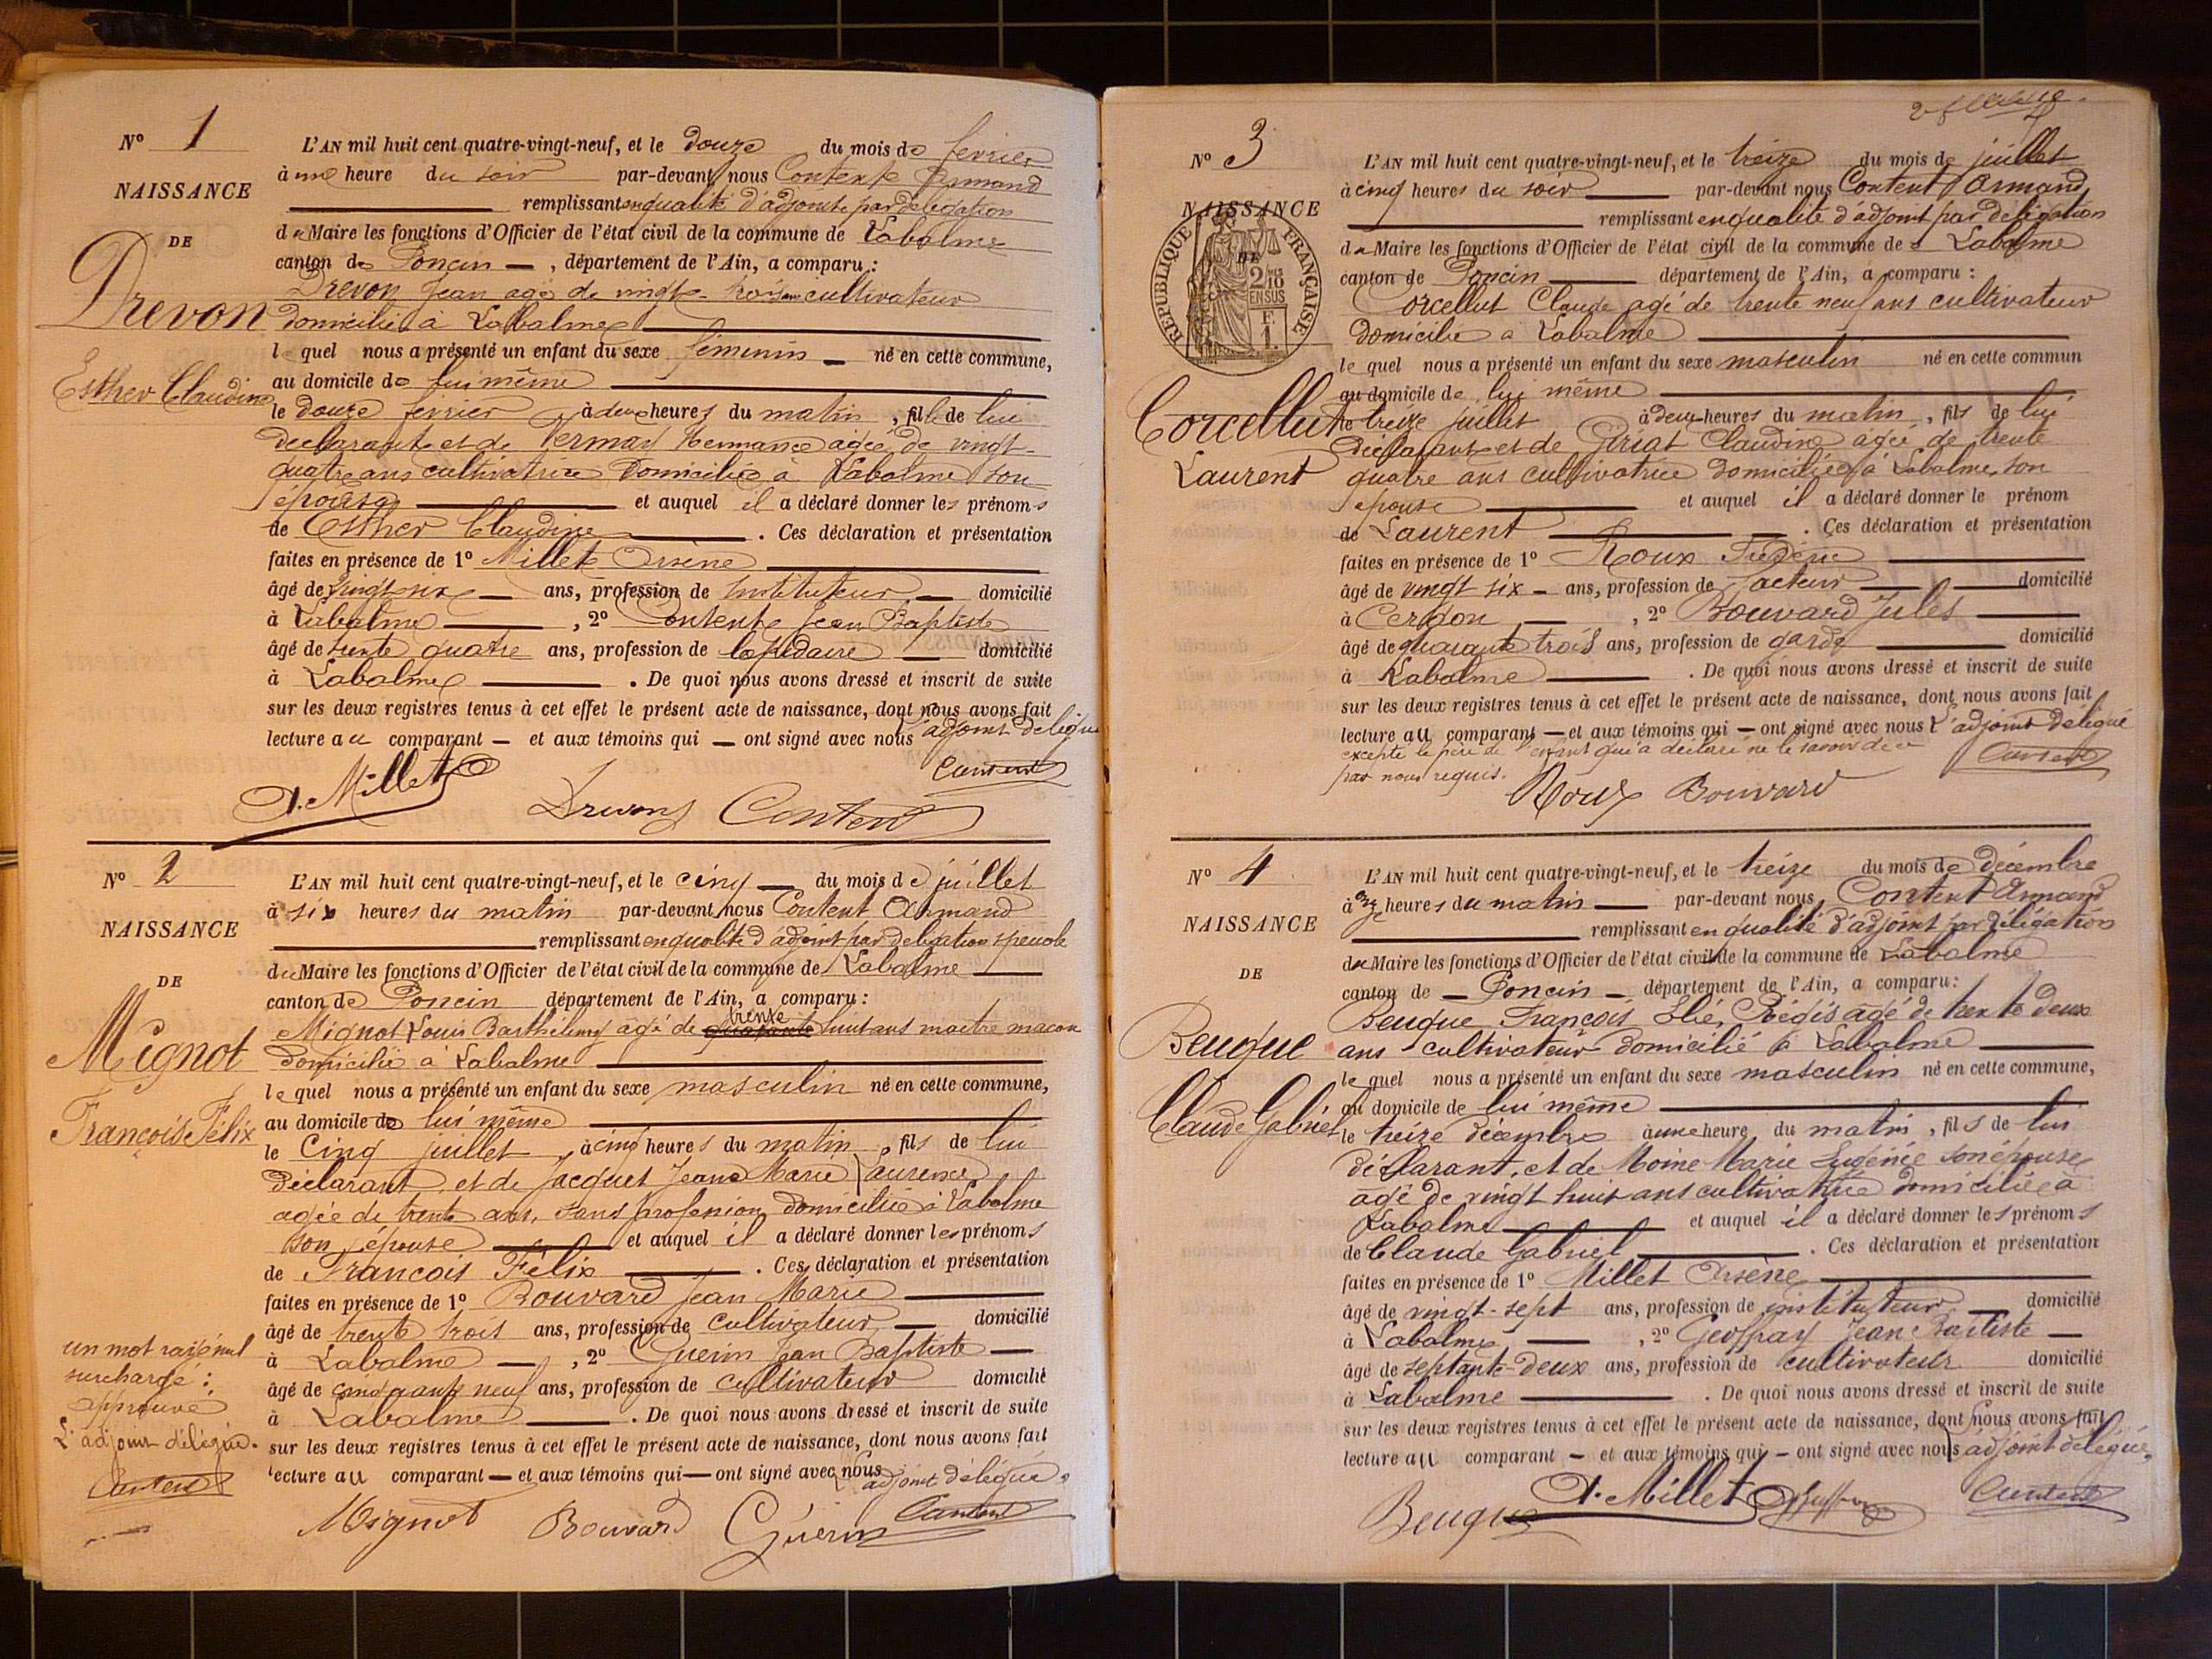 N° 1
NAISSANCE
DE
Drevon
Esther Claudine
L'AN mil huit cent quatre-vingt-neuf, et le douze du mois de fevrier
à une heure du soir par-devant nous Content Armand
remplissant en qualité d'adjoint par délégation
du Maire les fonctions d'Officier de l'état civil de la commune de Labalme
canton de Poncin, département de l'Ain, a comparu :
Drevon Jean agé de vingt-trois ans cultivateur
domicilié à Labalme
lequel nous a présenté un enfant du sexe féminin né en cette commune,
au domicile de lui même
le douze février à deux heures du matin, fille de lui
déclarant et de Hermance agée de vingt-
quatre ans cultivatrice domiciliée à Labalme son
épouse et auquel il a déclaré donner les prénoms
de Esther Claudine. Ces déclaration et présentation
faites en présence de 1° Millet Arsène
âgé de vingt-six ans, profession de Instituteur domicilié
à Labalme, 2° Content Jean Baptiste
âgé de trente quatre ans, profession de lapidaire domicilié
à Labalme. De quoi nous avons dressé et inscrit de suite
sur les deux registres tenus à cet effet le présent acte de naissance, dont nous avons fait
lecture au comparant et aux témoins qui ont signé avec nous L'adjoint délégué
A. Millet Drevon Content Content
N° 2
NAISSANCE
DE
Mignot
François Félix
L'AN mil huit cent quatre-vingt-neuf, et le cinq du mois de juillet
à six heures du matin par-devant nous Content Armand
remplissant en qualité d'adjoint par délégation speciale
du Maire les fonctions d'Officier de l'état civil de la commune de Labalme
canton de Poncin département de l'Ain, a comparu :
Mignot Louis Barthélemy âgé de quarante trente huit ans maitre macon
domicilié à Labalme
lequel nous a présenté un enfant du sexe masculin né en cette commune,
au domicile de lui même
le Cinq juillet, à cinq heures du matin, fils de lui
déclarant, et de Jacquet Jeane Marie Laurence
agée de trente ans, sans profession domiciliée à Labalme
son épouse et auquel il a déclaré donner les prénoms
de François Félix. Ces déclaration et présentation
faites en présence de 1° Bouvard Jean Marie
âgé de trente trois ans, profession de cultivateur domicilié
à Labalme, 2° Guerin Jean Baptiste
âgé de cinquante neuf ans, profession de cultivateur domicilié
à Labalme. De quoi nous avons dressé et inscrit de suite
sur les deux registres tenus à cet effet le présent acte de naissance, dont nous avons fait
lecture au comparant et aux témoins qui ont signé avec nous L'adjoint délégué.
un mot rayé nul
surchargé :
approuvé
L'adjoint délégué.
Content
Mignot Bouvard Guerin Content
N° 3
NAISSANCE
DE
RÉPUBLIQUE FRANÇAISE
2/10 EN SUS
F.
1.
Corcellut
Laurent
L'AN mil huit cent quatre-vingt-neuf, et le treize du mois de juillet
à cinq heures du soir par-devant nous Content Armand
remplissant en qualité d'adjoint par délégation
du Maire les fonctions d'Officier de l'état civil de la commune de Labalme
canton de Poncin département de l'Ain, a comparu :
Corcellut Claude agé de trente neuf ans cultivateur
domicilié a Labalme
lequel nous a présenté un enfant du sexe masculin né en cette commun
au domicile de lui même
le treize juillet à deux heures du matin, fils de lui
déclarant et de Giriat Claudine agée de trente
quatre ans cultivatrice domiciliée à Labalme son
épouse et auquel il a déclaré donner le prénom
de Laurent. Ces déclaration et présentation
faites en présence de 1° Roux Frédéric
âgé de vingt six ans, profession de facteur domicilié
à Cerdon, 2° Bouvard Jules
âgé de quarante trois ans, profession de garde domicilié
à Labalme. De quoi nous avons dressé et inscrit de suite
sur les deux registres tenus à cet effet le présent acte de naissance, dont nous avons fait
lecture au comparant et aux témoins qui ont signé avec nous L'adjoint délégué
excepté le père de l'enfant qui a déclaré ne le savoir de ce
par nous requis.
Roux Bouvard Content
N° 4
NAISSANCE
DE
Beuque
Claude Gabriel
L'AN mil huit cent quatre-vingt-neuf, et le treize du mois de décembre
à onze heures du matin par-devant nous Content Armand
remplissant en qualité d'adjoint par délégation
du Maire les fonctions d'Officier de l'état civil de la commune de Labalme
canton de Poncin département de l'Ain, a comparu :
Beuque François Régis agé de trente deux
ans cultivateur domicilié à Labalme
lequel nous a présenté un enfant du sexe masculin né en cette commune,
au domicile de lui même
le treize décembre à une heure du matin, fils de lui
déclarant, et de Moine Marie Eugénie son épouse
agé de vingt huit ans cultivatrice domiciliée à
Labalme et auquel il a déclaré donner les prénoms
de Claude Gabriel. Ces déclaration et présentation
faites en présence de 1° Millet Arsène
âgé de vingt-sept ans, profession de instituteur domicilié
à Labalme, 2° Geoffray Jean Baptiste
âgé de septante-deux ans, profession de cultivateur domicilié
à Labalme. De quoi nous avons dressé et inscrit de suite
sur les deux registres tenus à cet effet le présent acte de naissance, dont nous avons fait
lecture au comparant et aux témoins qui ont signé avec nous L'adjoint délégué.
Beuque A. Millet Content